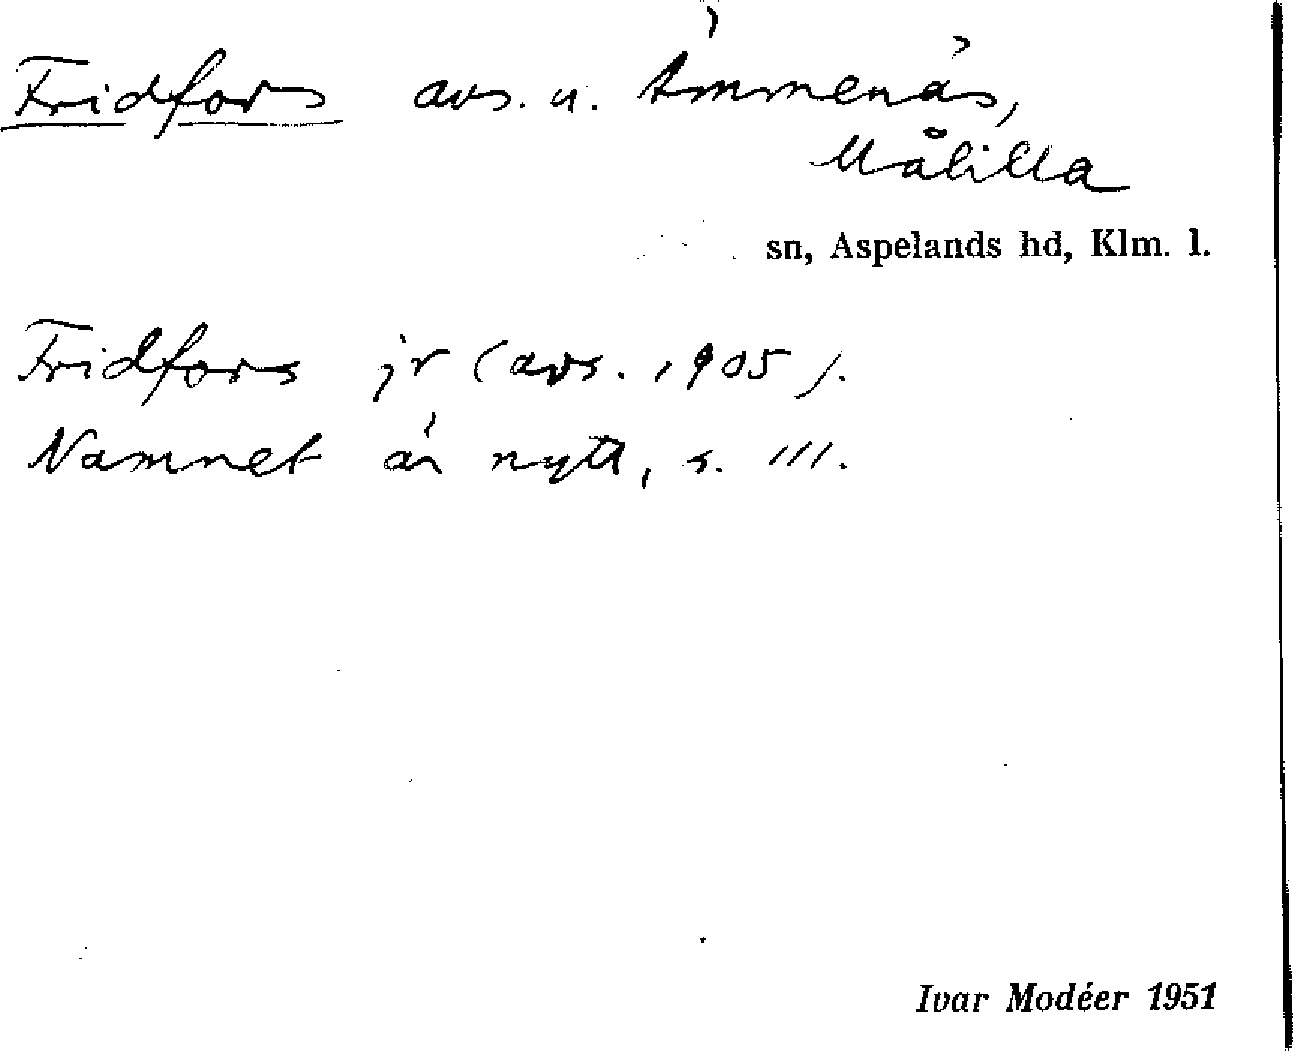 Fridfors avs. u. Ämmenäs,
Målilla
sn, Aspelands hd, Klm. l.
Fridfors jr (avs. 1905).
Namnet är nytt, s. 111.
Ivar Modéer 1951